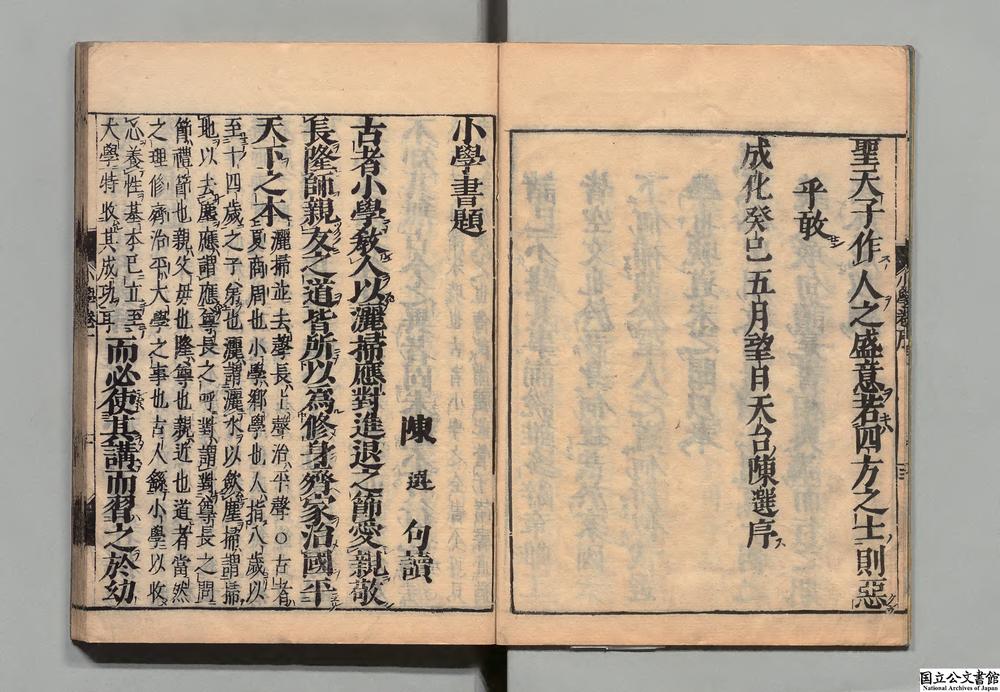 聖天子作人之盛意若四方之士則惡
乎敢
成化癸巳五月望日天台陳選序
小學書題
陳選句讀
古者小學教人以灑掃應對進退之節愛親敬
長隆師親友之道皆所以為修身齊家治國平
天下之本
灑掃並去聲長上聲治平聲○古者
夏商周也小學鄉學也人指八歲以
至十四歲之子弟也灑謂灑水以斂塵掃謂掃
地以去塵應謂應尊長之呼對謂對尊長之問
節禮節也親父母也隆尊也親近也道者當然
之理修齊治平大學之事也古人繇小學以收
心養性基本已立至
大學特收其成功耳
而必使其講而習之於幼
小學卷一
国立公文書館
National Archives of Japan